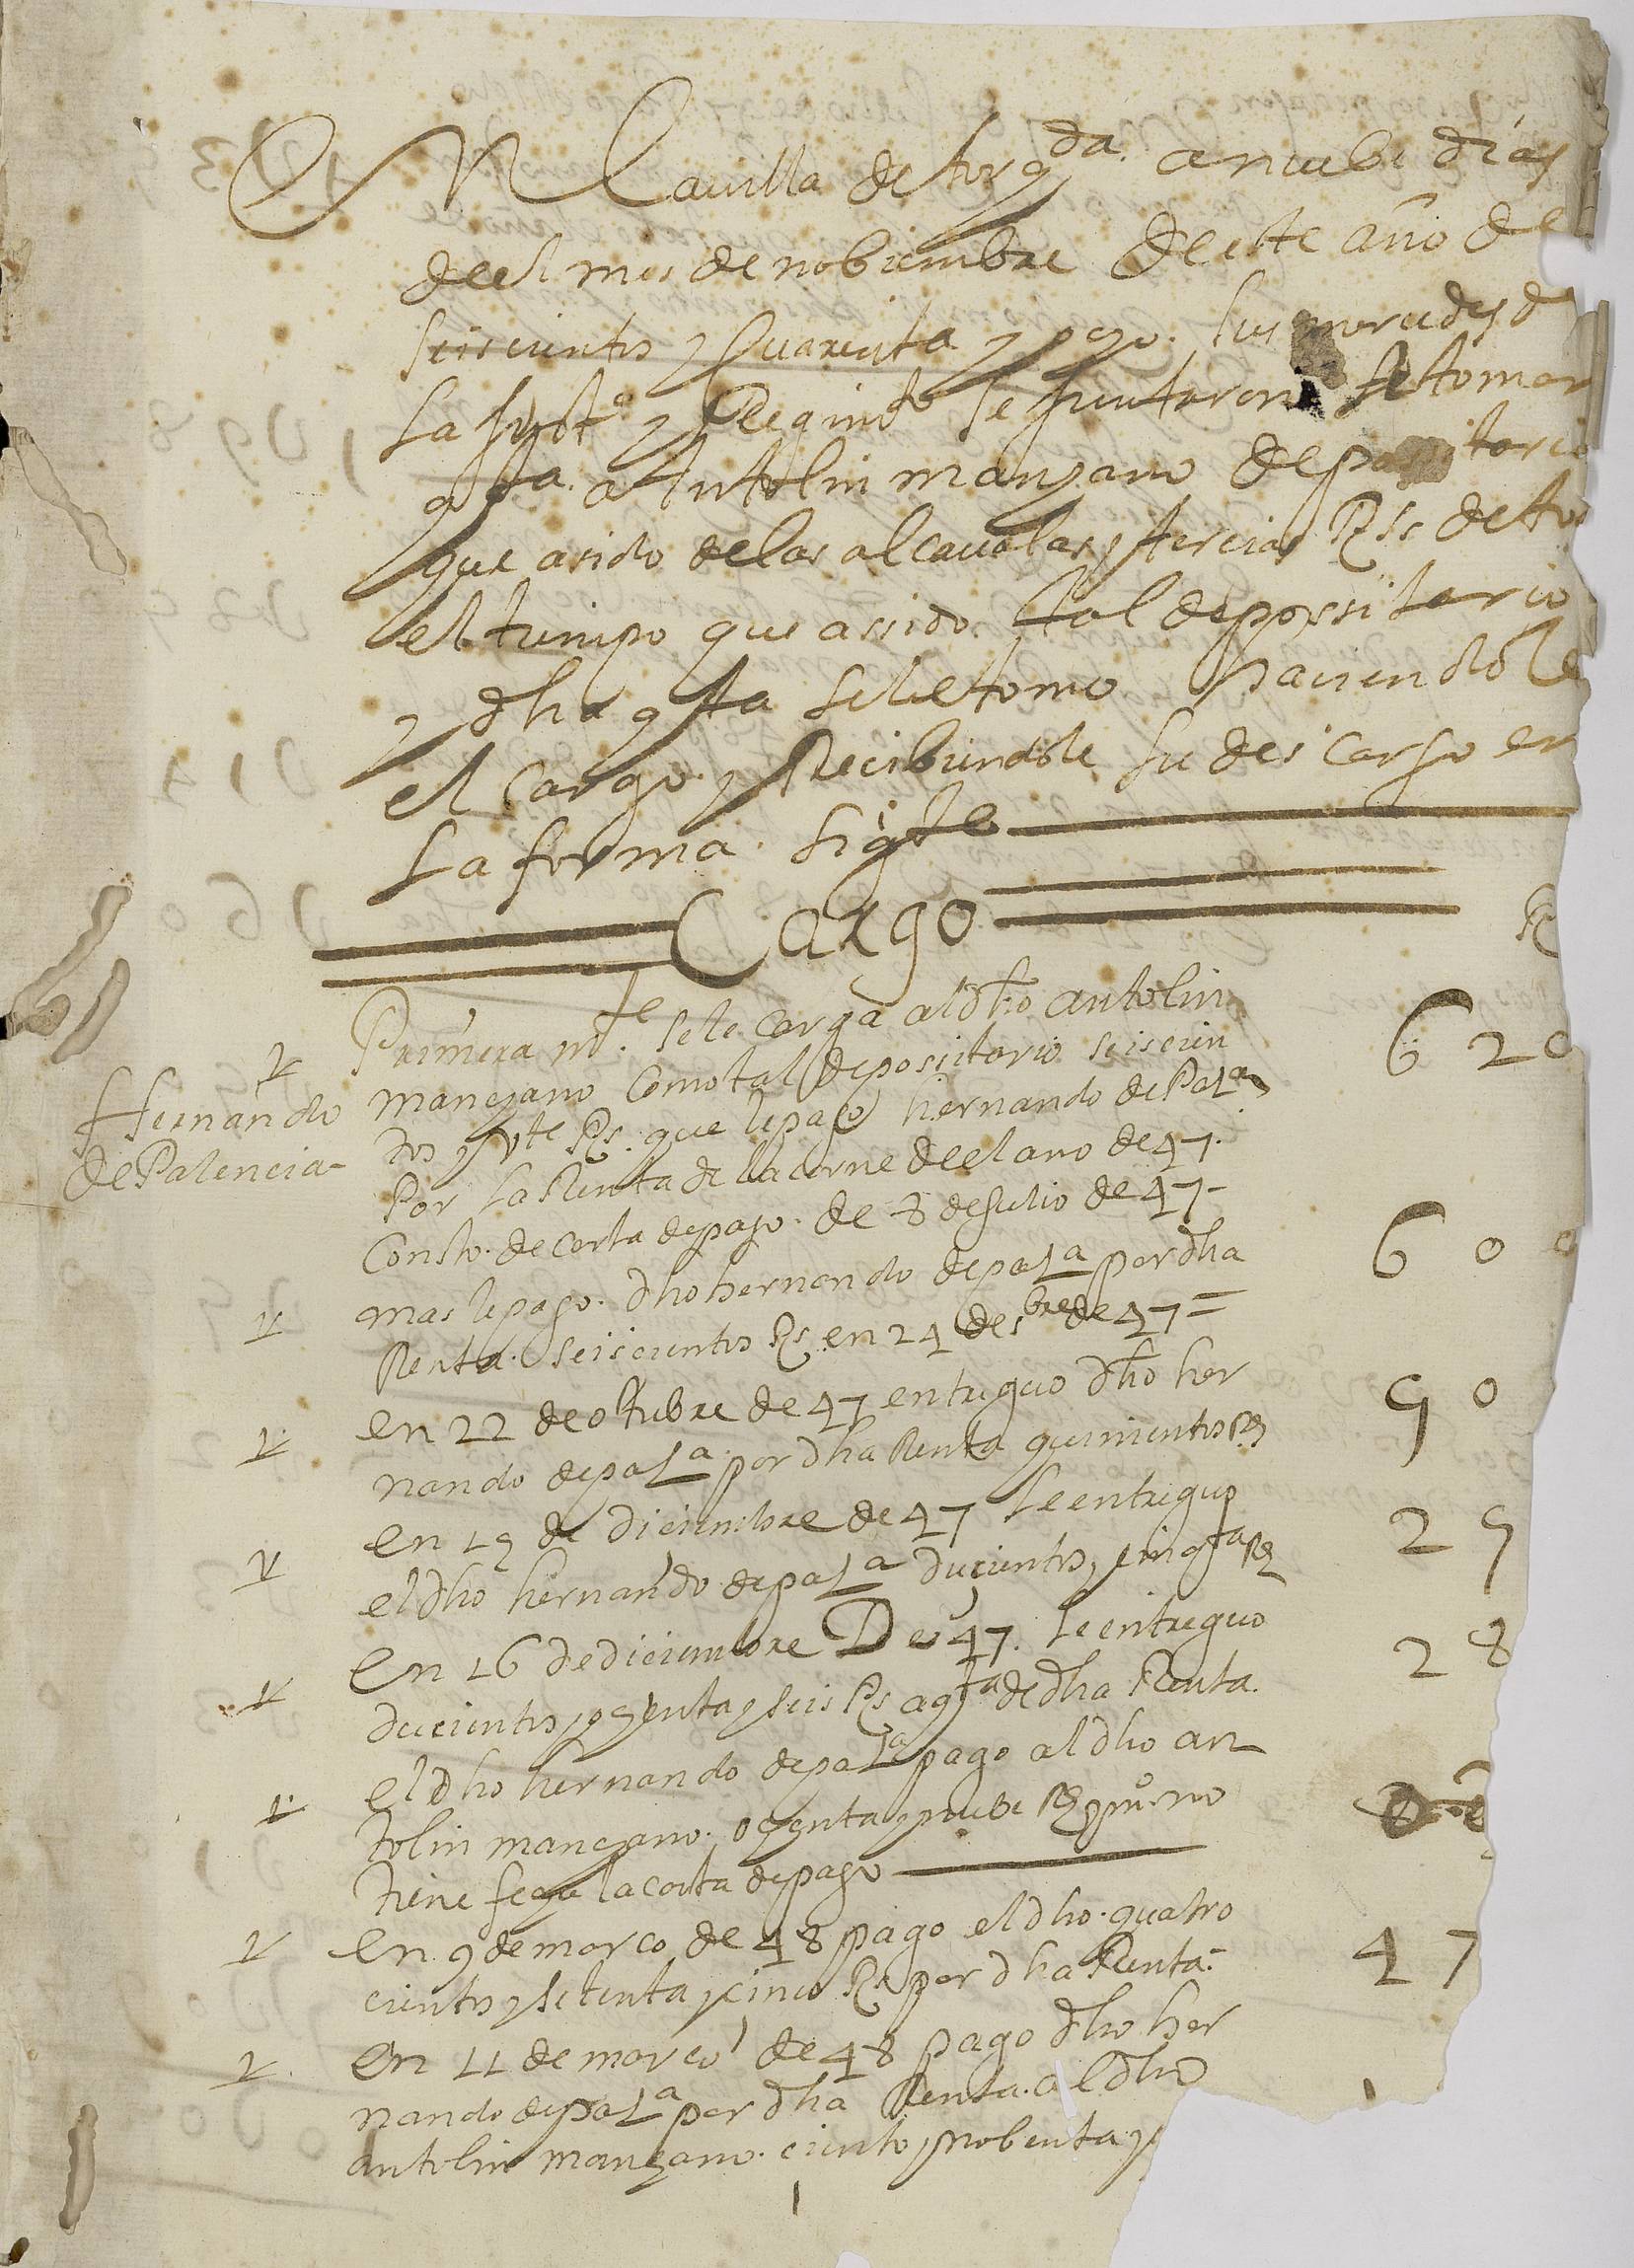 En la uilla de torq.da a nuebe días
de el mes de nobiembre de este año de
seiscientos y quarenta y ocho. sus mercedes de
la Just.a y Regim.to se juntaron a tomar
q.ta a Antolin manzano depositario
que asido de las alcaualas y tercias Rs de to
el tiempo que assido tal depossitario
y dha q.ta se le tomo haciendole
el cargo y Recibiendole su descargo en
la forma sig.te
Cargo
R
Primera m.te se le carga al dho antolin
manczano como tal depositario seiscien
tos y v.te Rs. que le pago hernando de Pal.a
Por la Renta de la carne de el año de 47.
Consto. de carta de pago. de 8 de Julio de 47-
620
Hernando
de Palencia-
mas le pago. dho hernando de pal.a por dha
Renta. seiscientos Rs en 24 de 7bre de 47=
600
en 22 de otubre de 47 entreguo dho her
nando de pal.a por dha Renta quinientos Rs
50
en 15 de diciembre de 47 le entreguo
el dho hernando de pal.a ducientos y cinq.ta Rs
25
en 16 de diciembre De 47. le entreguo
ducientos y ochenta y seis Rs a q.ta de dha Renta.
28
el dho hernando de pal.a pago al dho an
tolin manczano. ochenta y nuebe Rs no
tiene fecha la carta de pago
en 9 de março de 48 pago el dho. quatro
cientos y setenta y cinco Rs por dha Renta.
47
en 11 de março de 48 pago dho her
nando de pal.a por dha Renta. al dho
antolin manzano. ciento y nobenta y
1